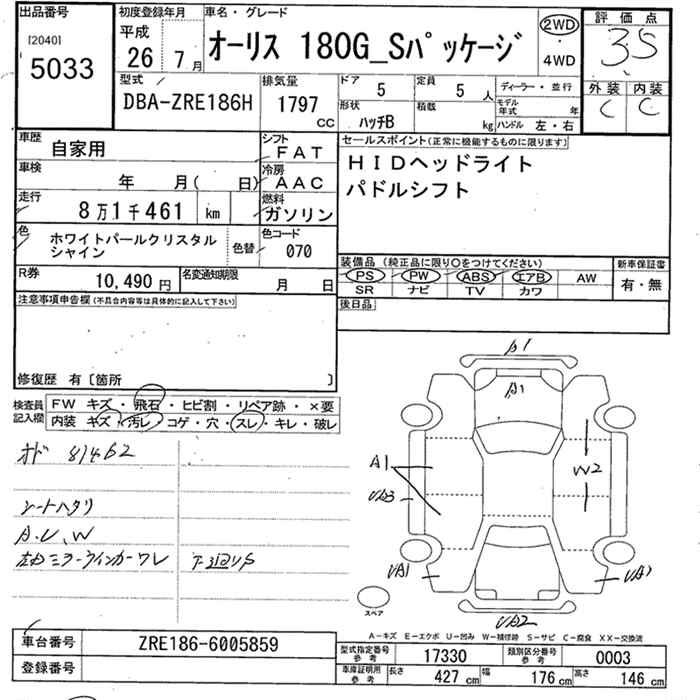 出品番号
[2040]
5033
初度登録年月
平成
26 7月
車名・グレード
オーリス 180G_Sパッケージ
2WD
・
4WD
評価点
3.5
外装 内装
C C
型式
DBA-ZRE186H
排気量
1797
CC
ドア 5
定員 5 人
形状 ハッチB
積載 kg
ディーラー・並行
モデル年式 年
ハンドル 左・右
車歴 自家用
シフト FAT
車検 年 月( 日)
冷房 AAC
走行 8万1千461 km
燃料 ガソリン
色 ホワイトパールクリスタル
シャイン
色替
色コード 070
R券 10,490円
名変通知期限 月 日
セールスポイント(正常に機能するものに限ります)
HIDヘッドライト
パドルシフト
装備品(純正品に限り○をつけてください)
PS PW ABS エアB AW
SR ナビ TV カワ
新車保証書
有・無
後日品
注意事項申告欄(不具合内容等は具体的に記入して下さい)
修復歴 有〔箇所 〕
検査員記入欄
FW キズ・飛石・ヒビ割・リペア跡・×要
内装 キズ・汚レ・コゲ・穴・スレ・キレ・破レ
オド 81462
シートハタリ
A.U,W
左右ミラーウインカーワレ
A1
A1
A1
W2
UA1
UA2
スペア
A-キズ E-エクボ U-凹み W-補修跡 S-サビ C-腐食 XX-交換済
車台番号 ZRE186-6005859
登録番号
型式指定番号参考 17330
類別区分番号参考 0003
車庫証明用参考
長さ 427 cm
幅 176 cm
高さ 146 cm